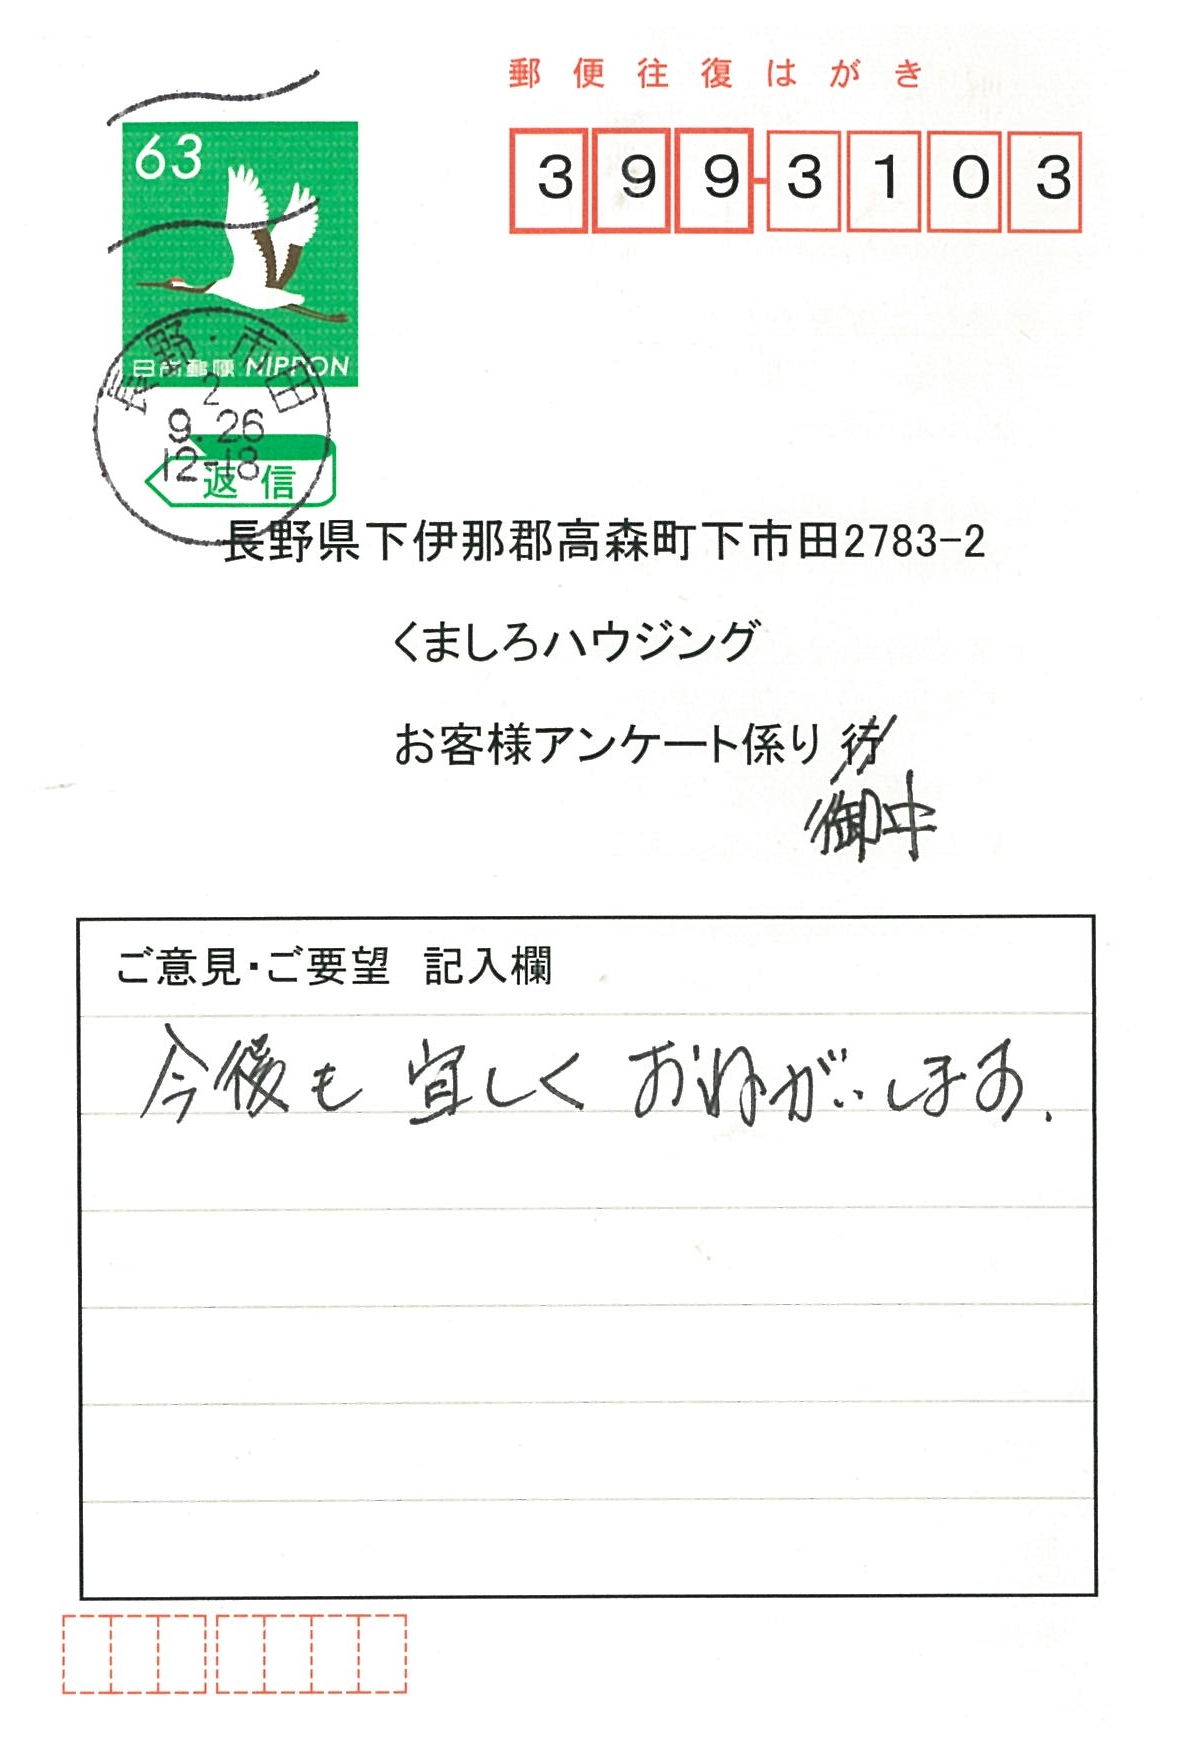 郵便往復はがき
63
399-3103
日本郵便 NIPPON
長野・市田
2
9.26
12-18
返信
長野県下伊那郡高森町下市田2783-2
くましろハウジング
お客様アンケート係り 行
御中
ご意見・ご要望 記入欄
今後も 宜しく おねがいします.